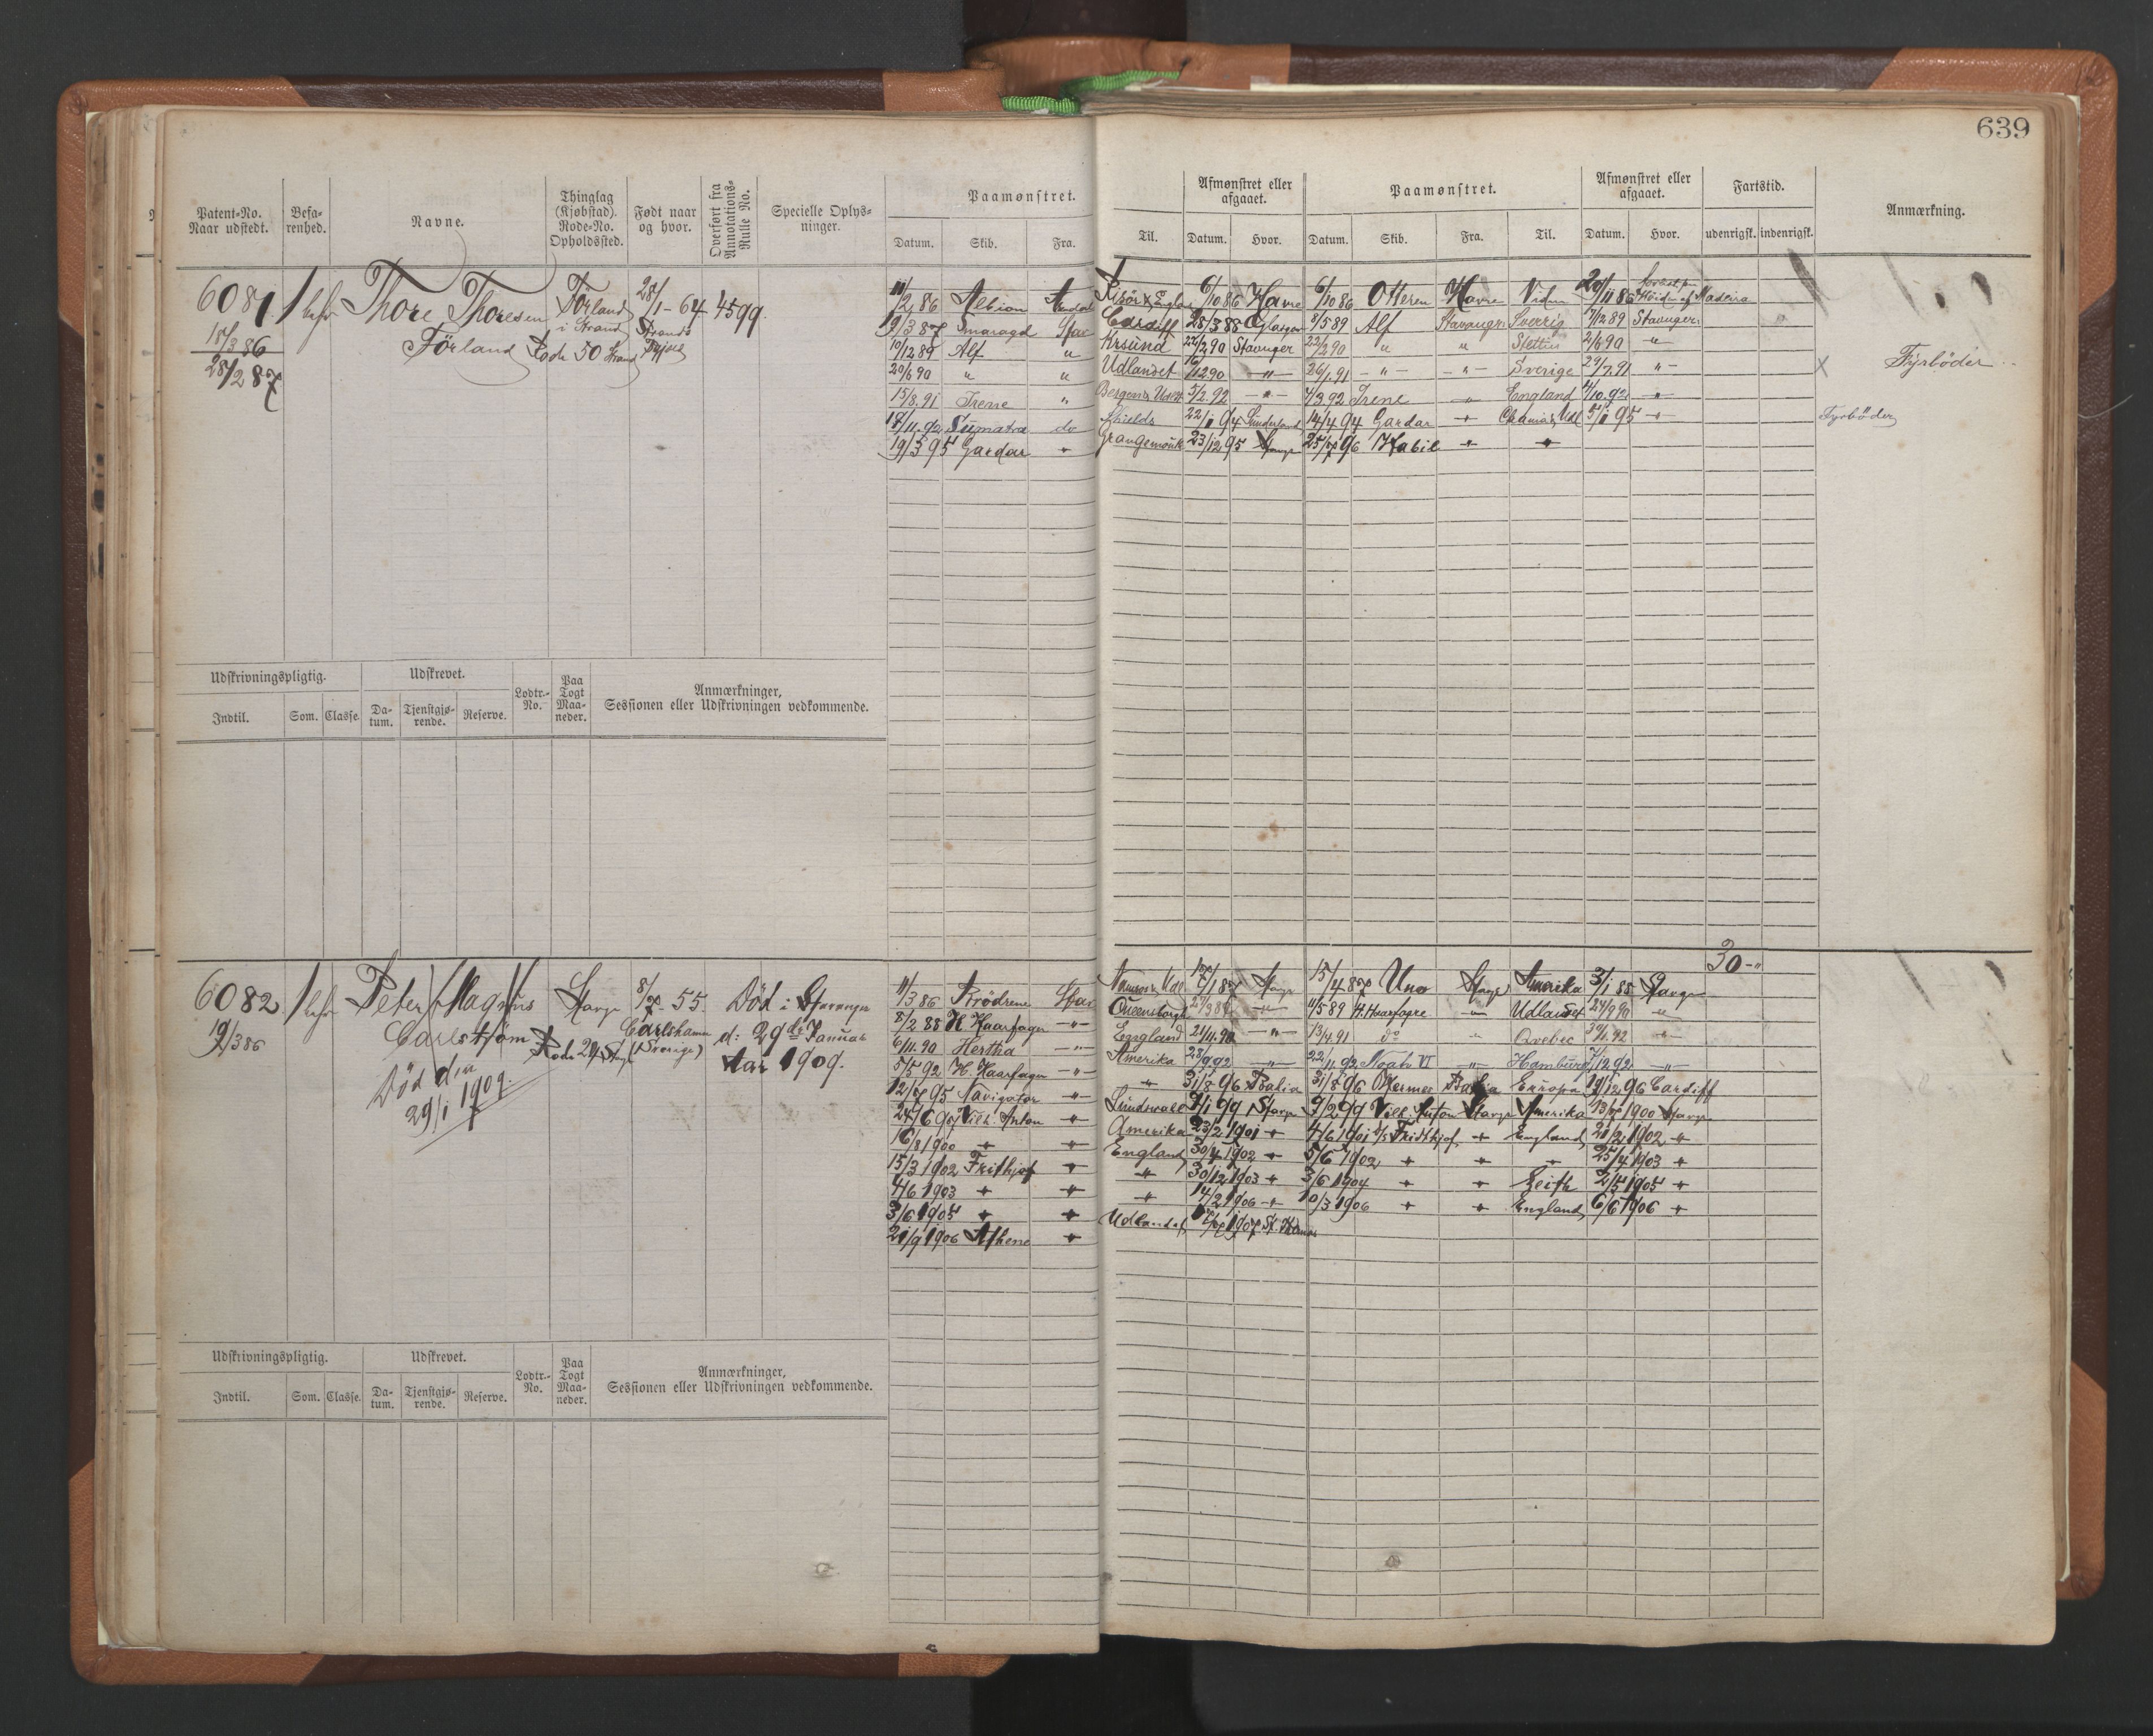 639
Patent-No. Naar udstedt.
Befarenhed.
Navne.
Thinglag (Kjøbstad). Rode-No. Opholdssted.
Født naar og hvor.
Overført fra Annotations-Rulle No.
Specielle Oplysninger.
Paamønstret.
Datum. Skib. Fra. Til.
Afmønstret eller afgaaet.
Datum. Hvor.
Paamønstret.
Datum. Skib. Fra. Til.
Afmønstret eller afgaaet.
Datum. Hvor.
Fartstid.
udenrigsk. indenrigsk.
Anmærkning.
6081
18/3 86
28/2 87
Thore Thoresen
Förland
Förland
i Strand
Rode 50 Strand
28/1-64
Strands
4599.
11/2 86 Albion
6/10 86 Havre 6/10 86 Otteren Havre
Madeira
19/3 87 Smaragd Stav
Cardiff 28/3 88 Glasgow 8/5 89 Alf Stavanger Sverig 7/12 89 Stavanger
10/12 89 Alf "
22/2 90 Stavanger 22/2 90 " " Stettin 2/6 90 "
20/6 90 " "
Udlandet 16/12 90 " 26/1 91 " " Sverige 29/7 91 "
Fyrböder
15/8 91 Irene "
5/2 92 " 4/3 92 Irene " England 4/10 92 "
18/11 92 Sumatra do
Shields 22/1 94 Sunderland 14/4 94 Gardar " 5/1 95 "
Fyrböder
19/3 95 Gardar "
Grangemouth 23/12 95 Stavgr 25/7 96 Habil " "
Udskrivningspligtig.
Indtil. Som. Classe.
Udskrevet.
Datum. Tjenstgjørende. Reserve.
Lodtr.-No.
Paa Togt Maaneder.
Anmærkninger,
Sessionen eller Udskrivningen vedkommende.
30 - "
6082
19/3 86
Peter Magnus
Carlström
Död den
29/1 1909.
Stavgr
Rode 24 Stvgr
8/7-55.
Carlshamn
(Sverige)
Död i Stavanger
d: 29de Januar
Aar 1909.
11/3 86 Brödrene Stav
Stavgr 15/4 87 Uno Stavgr Amerika 3/1 88 Stavgr
8/2 88 H. Haarfagre "
" 11/5 89 H. Haarfagre " Udlandet 24/9 90 "
6/11 90 Hertha "
England 21/11 90 " 13/4 91 do " Qvebec "
5/5 92 H. Haarfagre "
Amerika 28/9 92 " 22/11 92 Noatun VI " Hamburg 7/12 92 "
12/7 95 Navigator "
" 31/8 96 Bahia 31/8 96 Bahia Europa 19/12 96 Cardiff
24/6 98 Vilh. Anton "
9/1 99 Stavgr 9/2 99 Vilh. Anton Stavgr Amerika 1900 Stavgr
16/8 1900 " "
Amerika 23/2 1901 " 4/6 1901 D/s Fridthjof " England 21/2 1902 "
15/3 1902 Frithjof "
England 30/4 1902 " 5/6 1902 " " " 25/4 1903 "
4/6 1903 " "
" 30/12 1903 " 3/6 1904 " " Leith 2/5 1905 "
3/6 1905 " "
" 14/2 1906 " 10/3 1906 " " England 6/6 1906 "
21/9 1906 Athene "
Udlandet 1907 St. Thomas
Udskrivningspligtig.
Indtil. Som. Classe.
Udskrevet.
Datum. Tjenstgjørende. Reserve.
Lodtr.-No.
Paa Togt Maaneder.
Anmærkninger,
Sessionen eller Udskrivningen vedkommende.